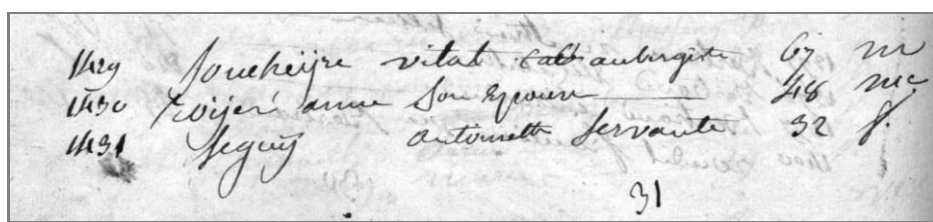 1429 Soucheijre vital cab aubergiste 67 m
1430 Roijeré anne Son Epouse 48 me
1431 Seguÿ antoinette Servante 32 f.
31